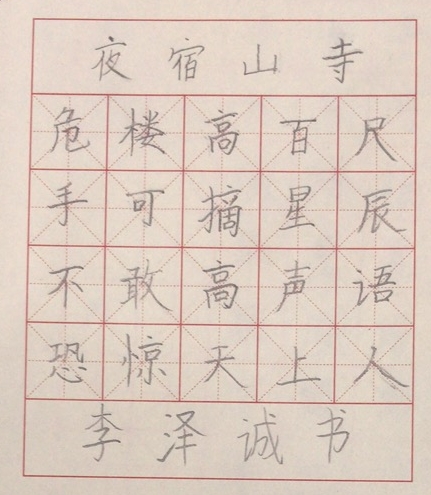 夜宿山寺
危楼高百尺
手可摘星辰
不敢高声语
恐惊天上人
李泽诚书